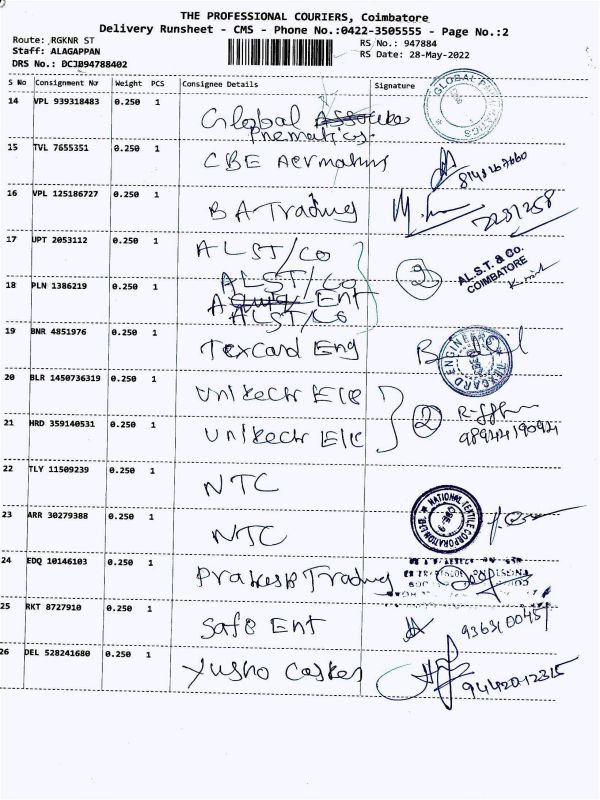 THE PROFESSIONAL COURIERS, Coimbatore
Delivery Runsheet - CMS - Phone No.:0422-3505555 - Page No.:2
Route: RGKNR ST
RS No.: 947884
Staff: ALAGAPPAN
RS Date: 28-May-2022
DRS No.: DCJ094788402
S No Consignment Nr Weight PCS Consignee Details Signature
14 VPL 939318483 0.250 1 Global
Pnematics
GLOBAL PNEUMATICS
15 TVL 7655351 0.250 1 CBE
16 VPL 125186727 0.250 1 BA Trading
17 UPT 2053112 0.250 1 ALST/Co
2 AL.S.T. & Co.
COIMBATORE
18 PLN 1386219 0.250 1 ALST/Co
Ent
ALST/Co
19 BNR 4851976 0.250 1 Texcard Eng
TEXCARD ENGINEER
20 BLR 1450736319 0.250 1 Unitech Ele
2
21 HRD 359140531 0.250 1 Unitech Ele
22 TLY 11509239 0.250 1 NTC
NATIONAL TEXTILE CORPORATION LTD.
23 ARR 30279388 0.250 1 NTC
24 EDQ 10146103 0.250 1 Prakash Trading
25 RKT 8727910 0.250 1 Safe Ent
26 DEL 528241680 0.250 1 Yusho
9442012315